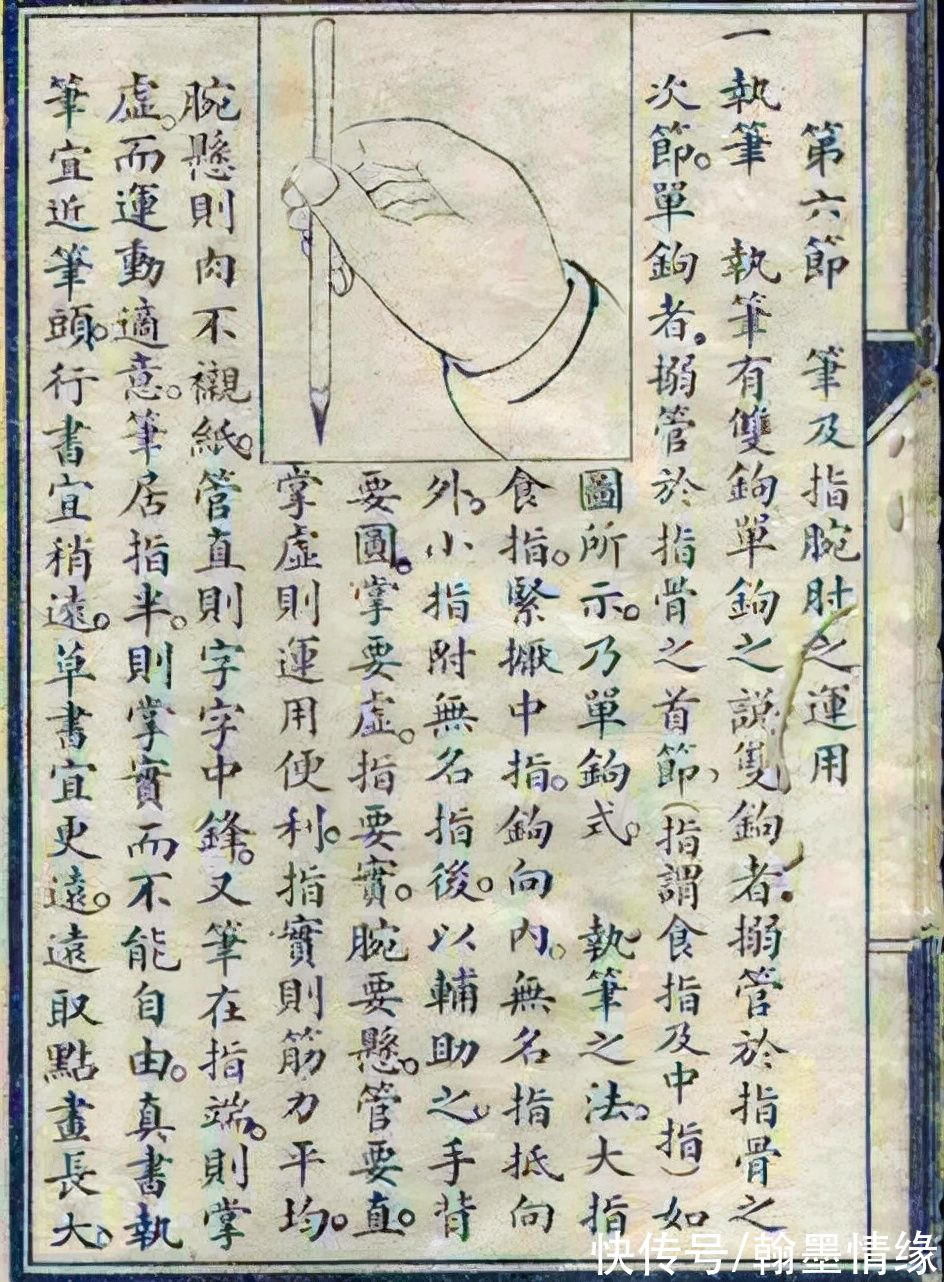 第六節　筆及指腕肘之運用
一執筆　執筆有雙鉤單鉤之說雙鉤者。搦管於指骨之
次節。單鉤者。搦管於指骨之首節、(指謂食指及中指)如
圖所示。乃單鉤式。　執筆之法。大指
食指。緊擫中指。鉤向內。無名指抵向
外。小指附無名指後。以輔助之。手背
要圓。掌要虛。指要實。腕要懸。管要直。
掌虛則運用便利。指實則筋力平均。
腕懸則肉不襯紙。管直則字字中鋒。又筆在指端。則掌
虛。而運動適意。筆居指半。則掌實而不能自由。真書執
筆宜近筆頭。行書宜稍遠。草書宜更遠。遠取點畫長大。
快传号/翰墨情缘